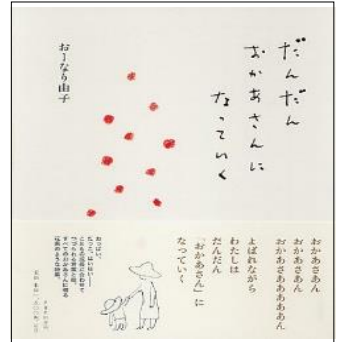 だんだん
おかあさんに
なっていく
おーなり由子
おかあさあん
おかあさあん
おかあさあああああん
よばれながら
わたしは
だんだん
「おかあさん」に
なっていく
おっぱい、